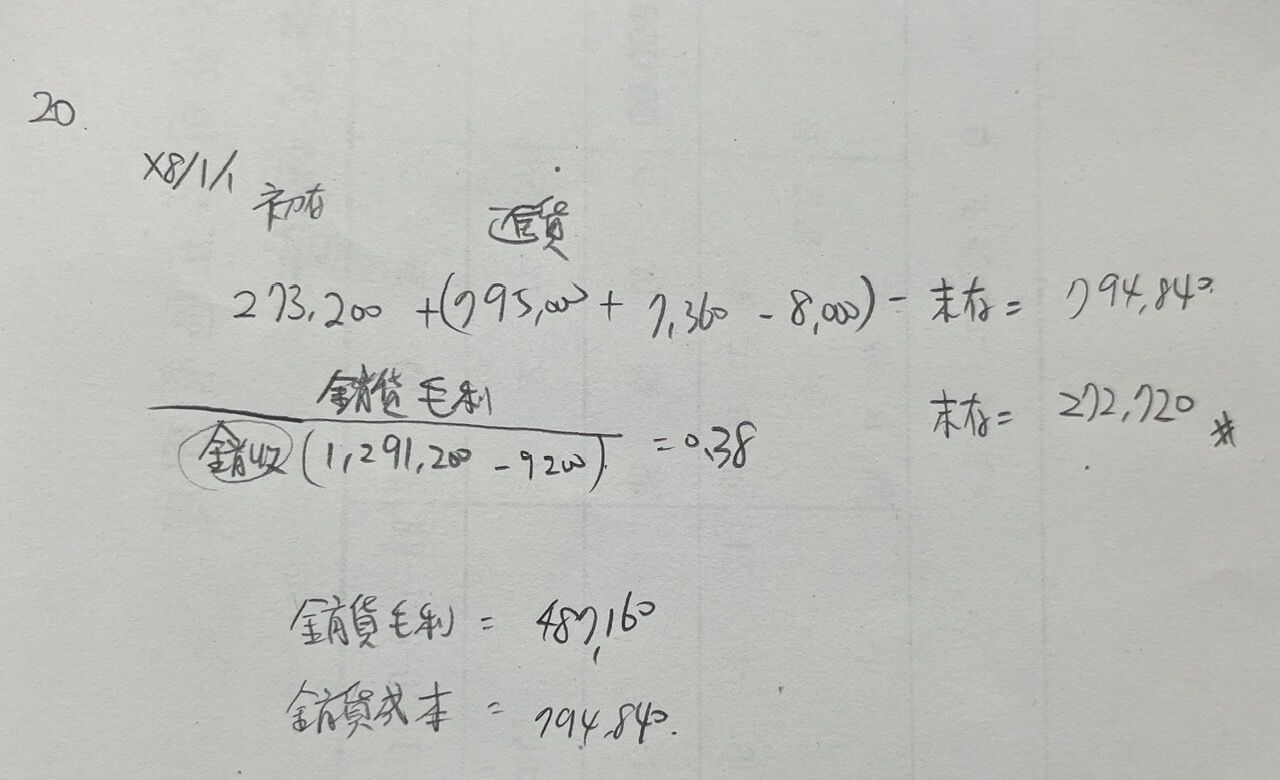 20
X8/1/1 初存 進貨
273,200 + (795,000 + 7,360 - 8,000) - 末存 = 794,840
銷貨毛利
銷收 (1,291,200 - 9200) = 0.38
末存 = 272,720 #
銷貨毛利 = 487,160
銷貨成本 = 794,840.